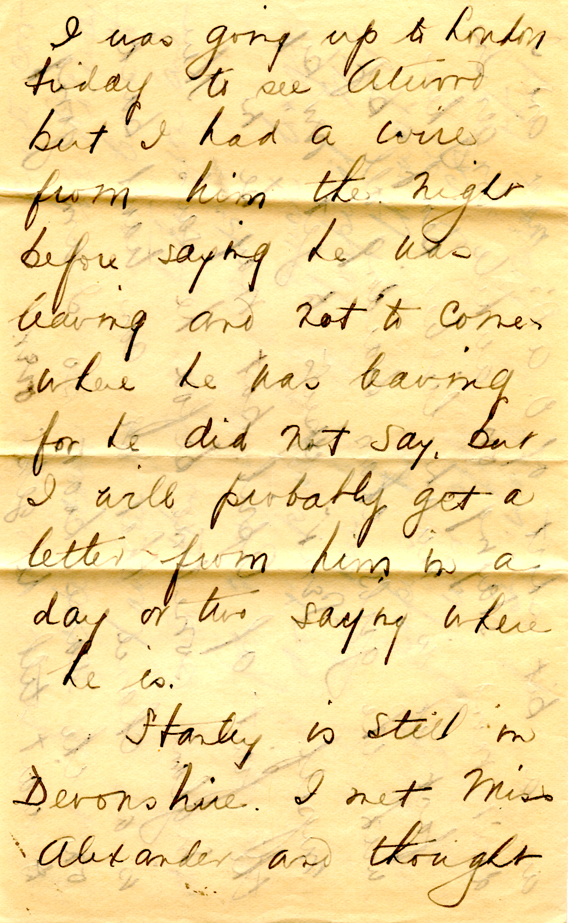 I was going up to London
Friday to see Atwood
but I had a wire
from him the night
before saying he was
leaving and not to come
where he was leaving
for he did not say, but
I will probably get a
letter from him in a
day or two saying where
he is.
Stanley is still in
Devonshire. I met Miss
Alexander and thought